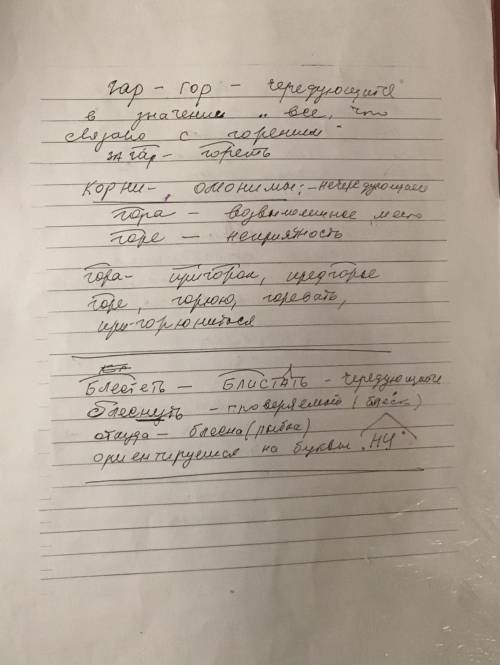 гар - гор - чередующиеся
в значении „все, что
связано с горением"
загар - гореть
Корни - омонимы: - нечередующиеся
гора - возвышенное место
горе - неприятность
гора - пригорок, предгорье
горе, горюю, горевать,
пригорюниться
Блестеть - БЛИСТАТЬ - чередующиеся
блеснуть - проверяемой (блеск)
откуда - блесна (рыбка)
ориентируемся на буквы „НУ"